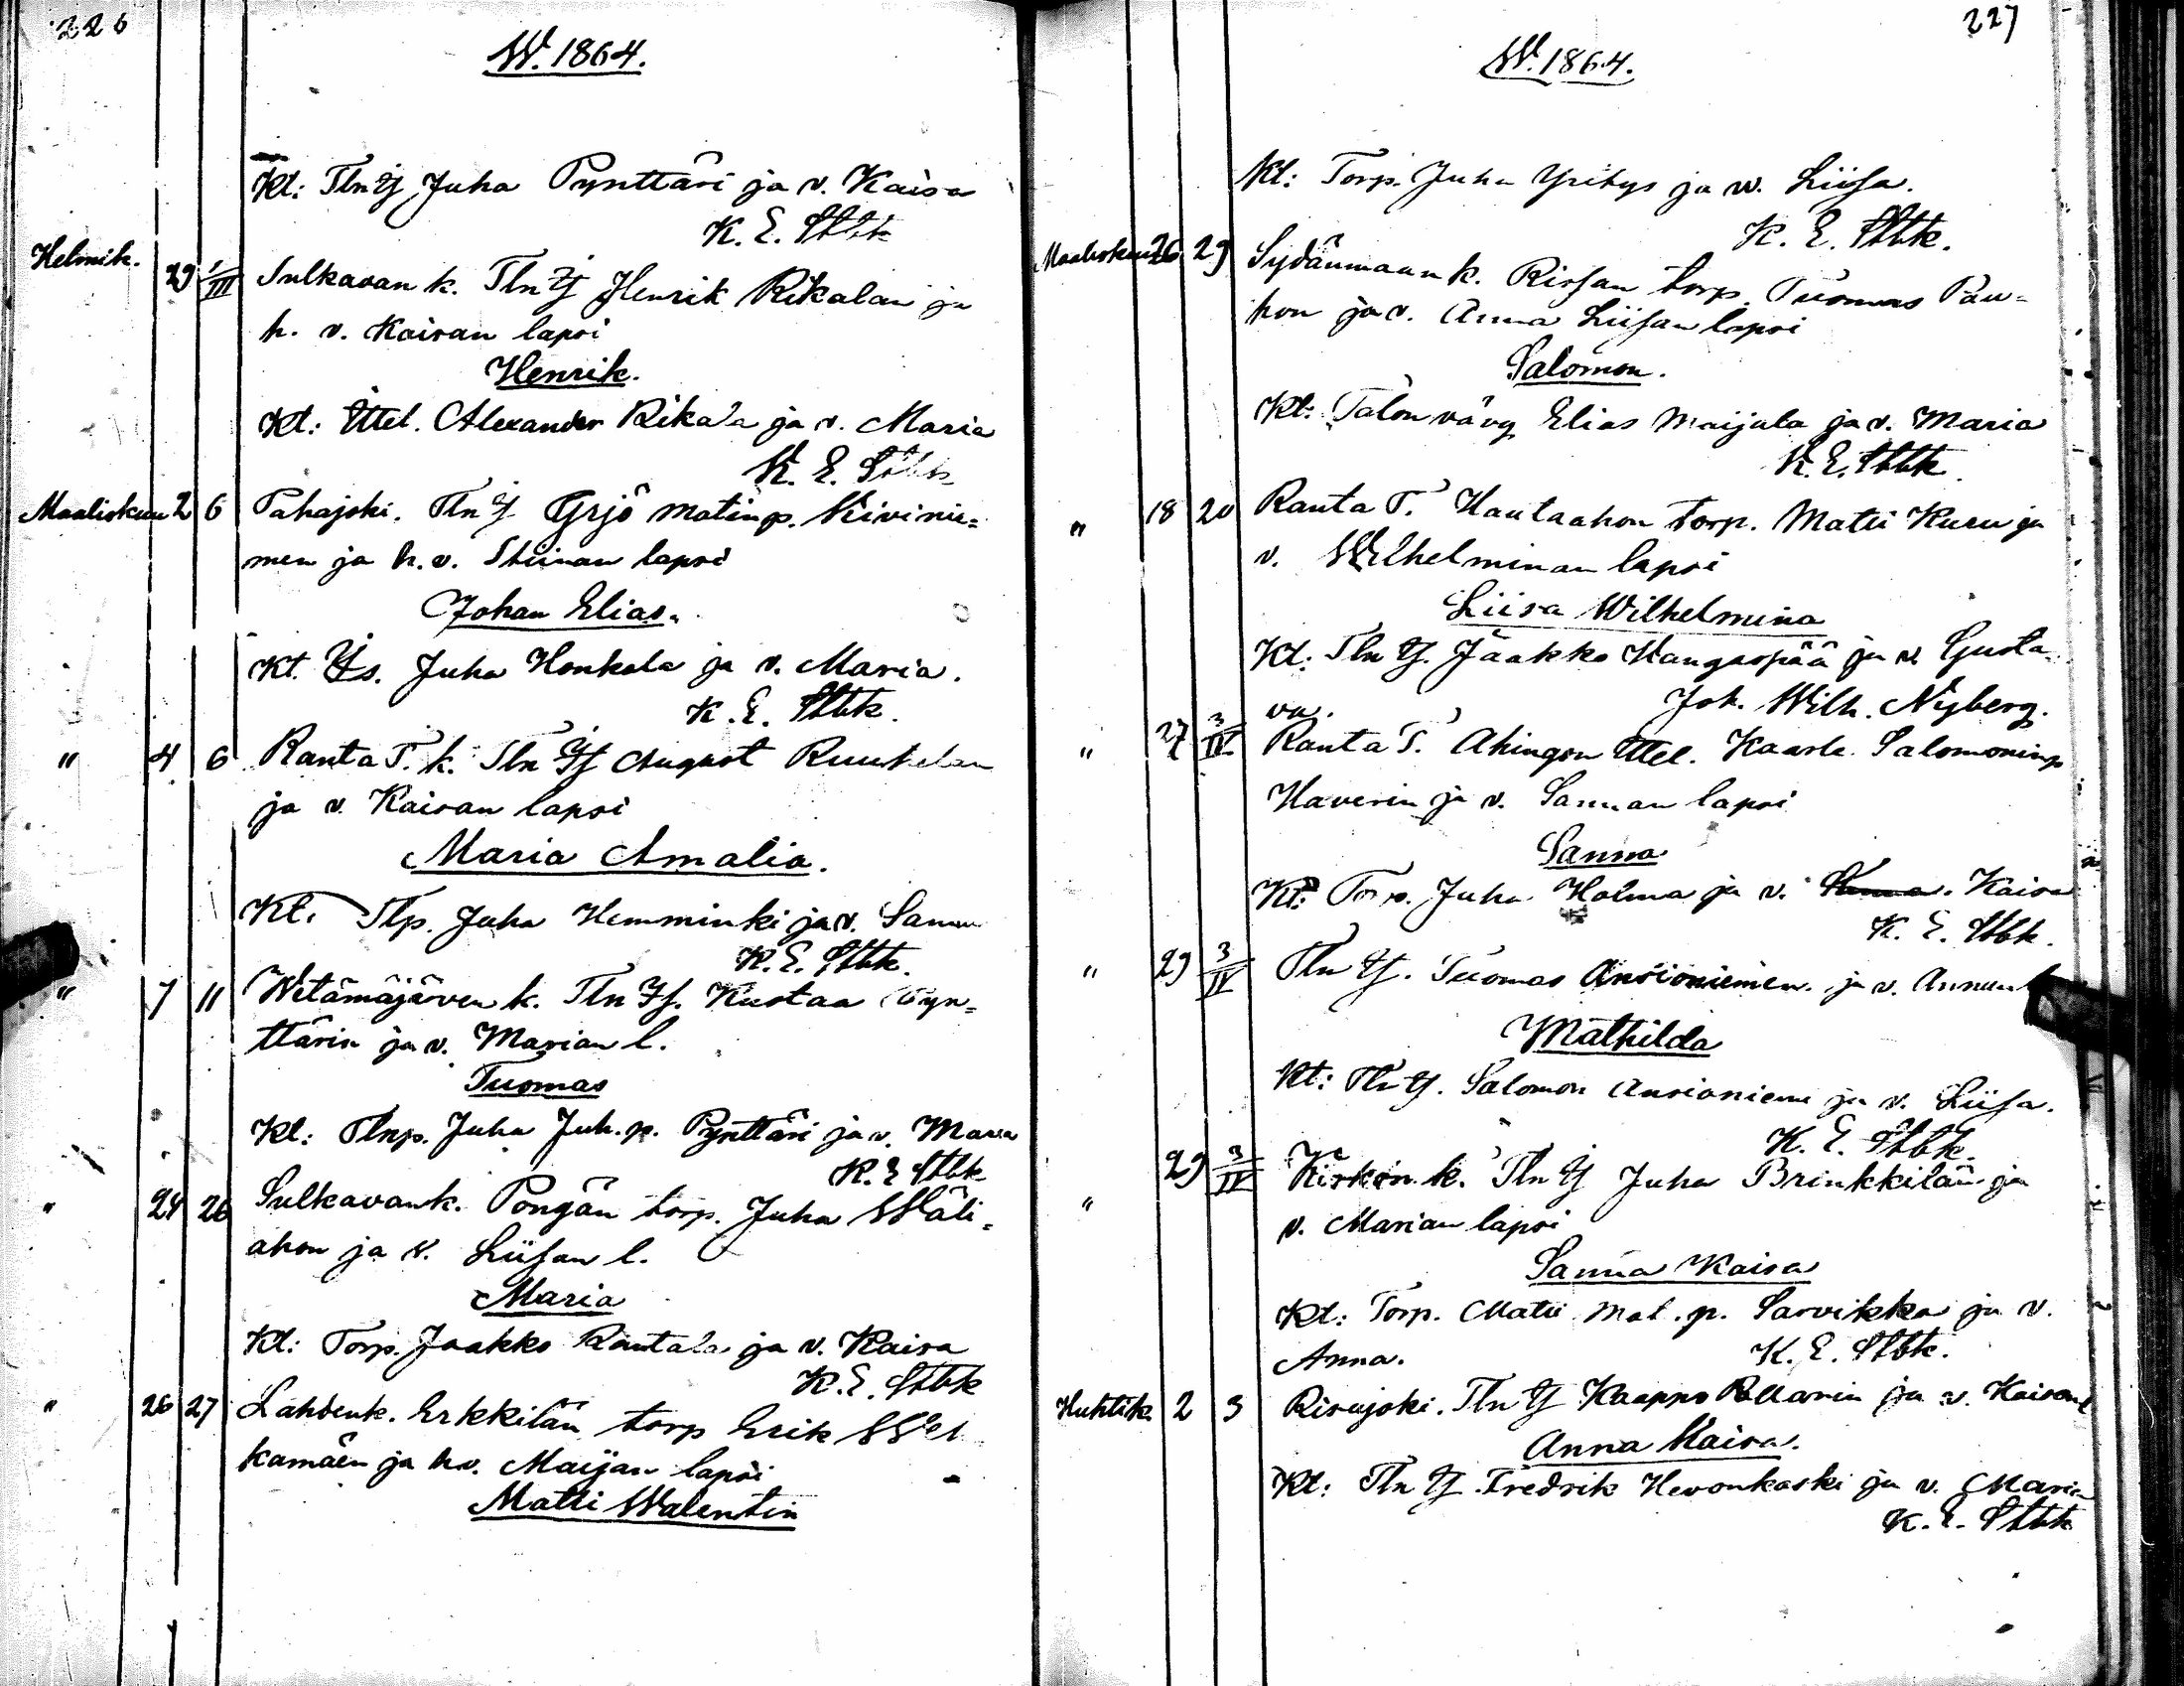 226
W. 1864.
Kt: Tln Js Juha Pynttäri ja v. Kaisa
K. E. Stbk
Helmik. 29 1/III Sulkavan k. Tln Js Henrik Rikalan ja
h. v. Kaisan lapsi
Henrik.
Kt: Ittel. Alexander Rikala ja v. Maria
K. E. Stbk
Maaliskuu 2 6 Pahajoki. Tln Js Yrjö Matinp. Kivinie=
men ja h. v. Stiinan lapsi
Johan Elias.
Kt. Is. Juha Honkala ja v. Maria.
K. E. Stbk.
" 4 6 Ranta T. k. Tln Js August Ruukelan
ja v. Kaisan lapsi
Maria Amalia.
Kt. Tlp. Juha Hemminki ja v. Sanna
K. E. Stbk.
" 7 11 Wetämäjärven k. Tln Js. Kustaa Pyn=
ttärin ja v. Marian l.
Tuomas
Kt: Tlnp. Juha Juh. p. Pynttäri ja v. Maria
K. E Stbk
" 24 26 Sulkavank. Pongän torp. Juha Wäli=
ahon ja v. Liisan l.
Maria
Kt: Torp. Jaakko Rantala ja v. Kaisa
K. E. Stbk
" 26 27 Lahdenk. Erkkilän torp Erik
kamäen ja hv. Maijan lapsi
Matti Walentin
227
W. 1864.
Kt: Torp. Juha Yritys ja w. Liisa.
K. E. Stbk.
Maaliskuu 26 29 Sydänmaan k. Rissan torp. Tuomas Pau=
hon ja v. Anna Liisan lapsi
Salomon.
Kt: Talon vävy Elias Maijala ja v. Maria
K. E. Stbk.
" 18 20 Ranta T. Hautaahon Torp. Matti Kuru ja
v. Wilhelminan lapsi
Liisa Wilhelmina
Kt: Tln Js. Jaakko Kangaspää ja v. Gusta=
va. Joh. Wilh. Nyberg.
" 27 3/IV Ranta T. Ahingon Ittel. Kaarle Salomoninp
Haverin ja v. Sannan lapsi
Sanna
Kt: Torp. Juha Holma ja v. Kaisa
K. E. Stbk.
" 29 3/IV Tln Js. Tuomas Ansioniemen ja v. Annan l
Mathilda
Kt: Tln Js. Salomon Ansioniemi ja v. Liisa.
K. E. Stbk.
" 29 3/IV Kirkon k. Tln Js Juha Brinkkilän ja
v. Marian lapsi
Sanna Kaisa
Kt: Torp. Matti Mat. p. Sarvikka ja v.
Anna. K. E. Stbk.
Huhtik. 2 3 Risujoki. Tln Js Kaappo Pollarin ja v. Kaisan l
Anna Kaisa.
Kt: Tln Js Fredrik Hevonkoski ja v. Maria
K. E. Stbk